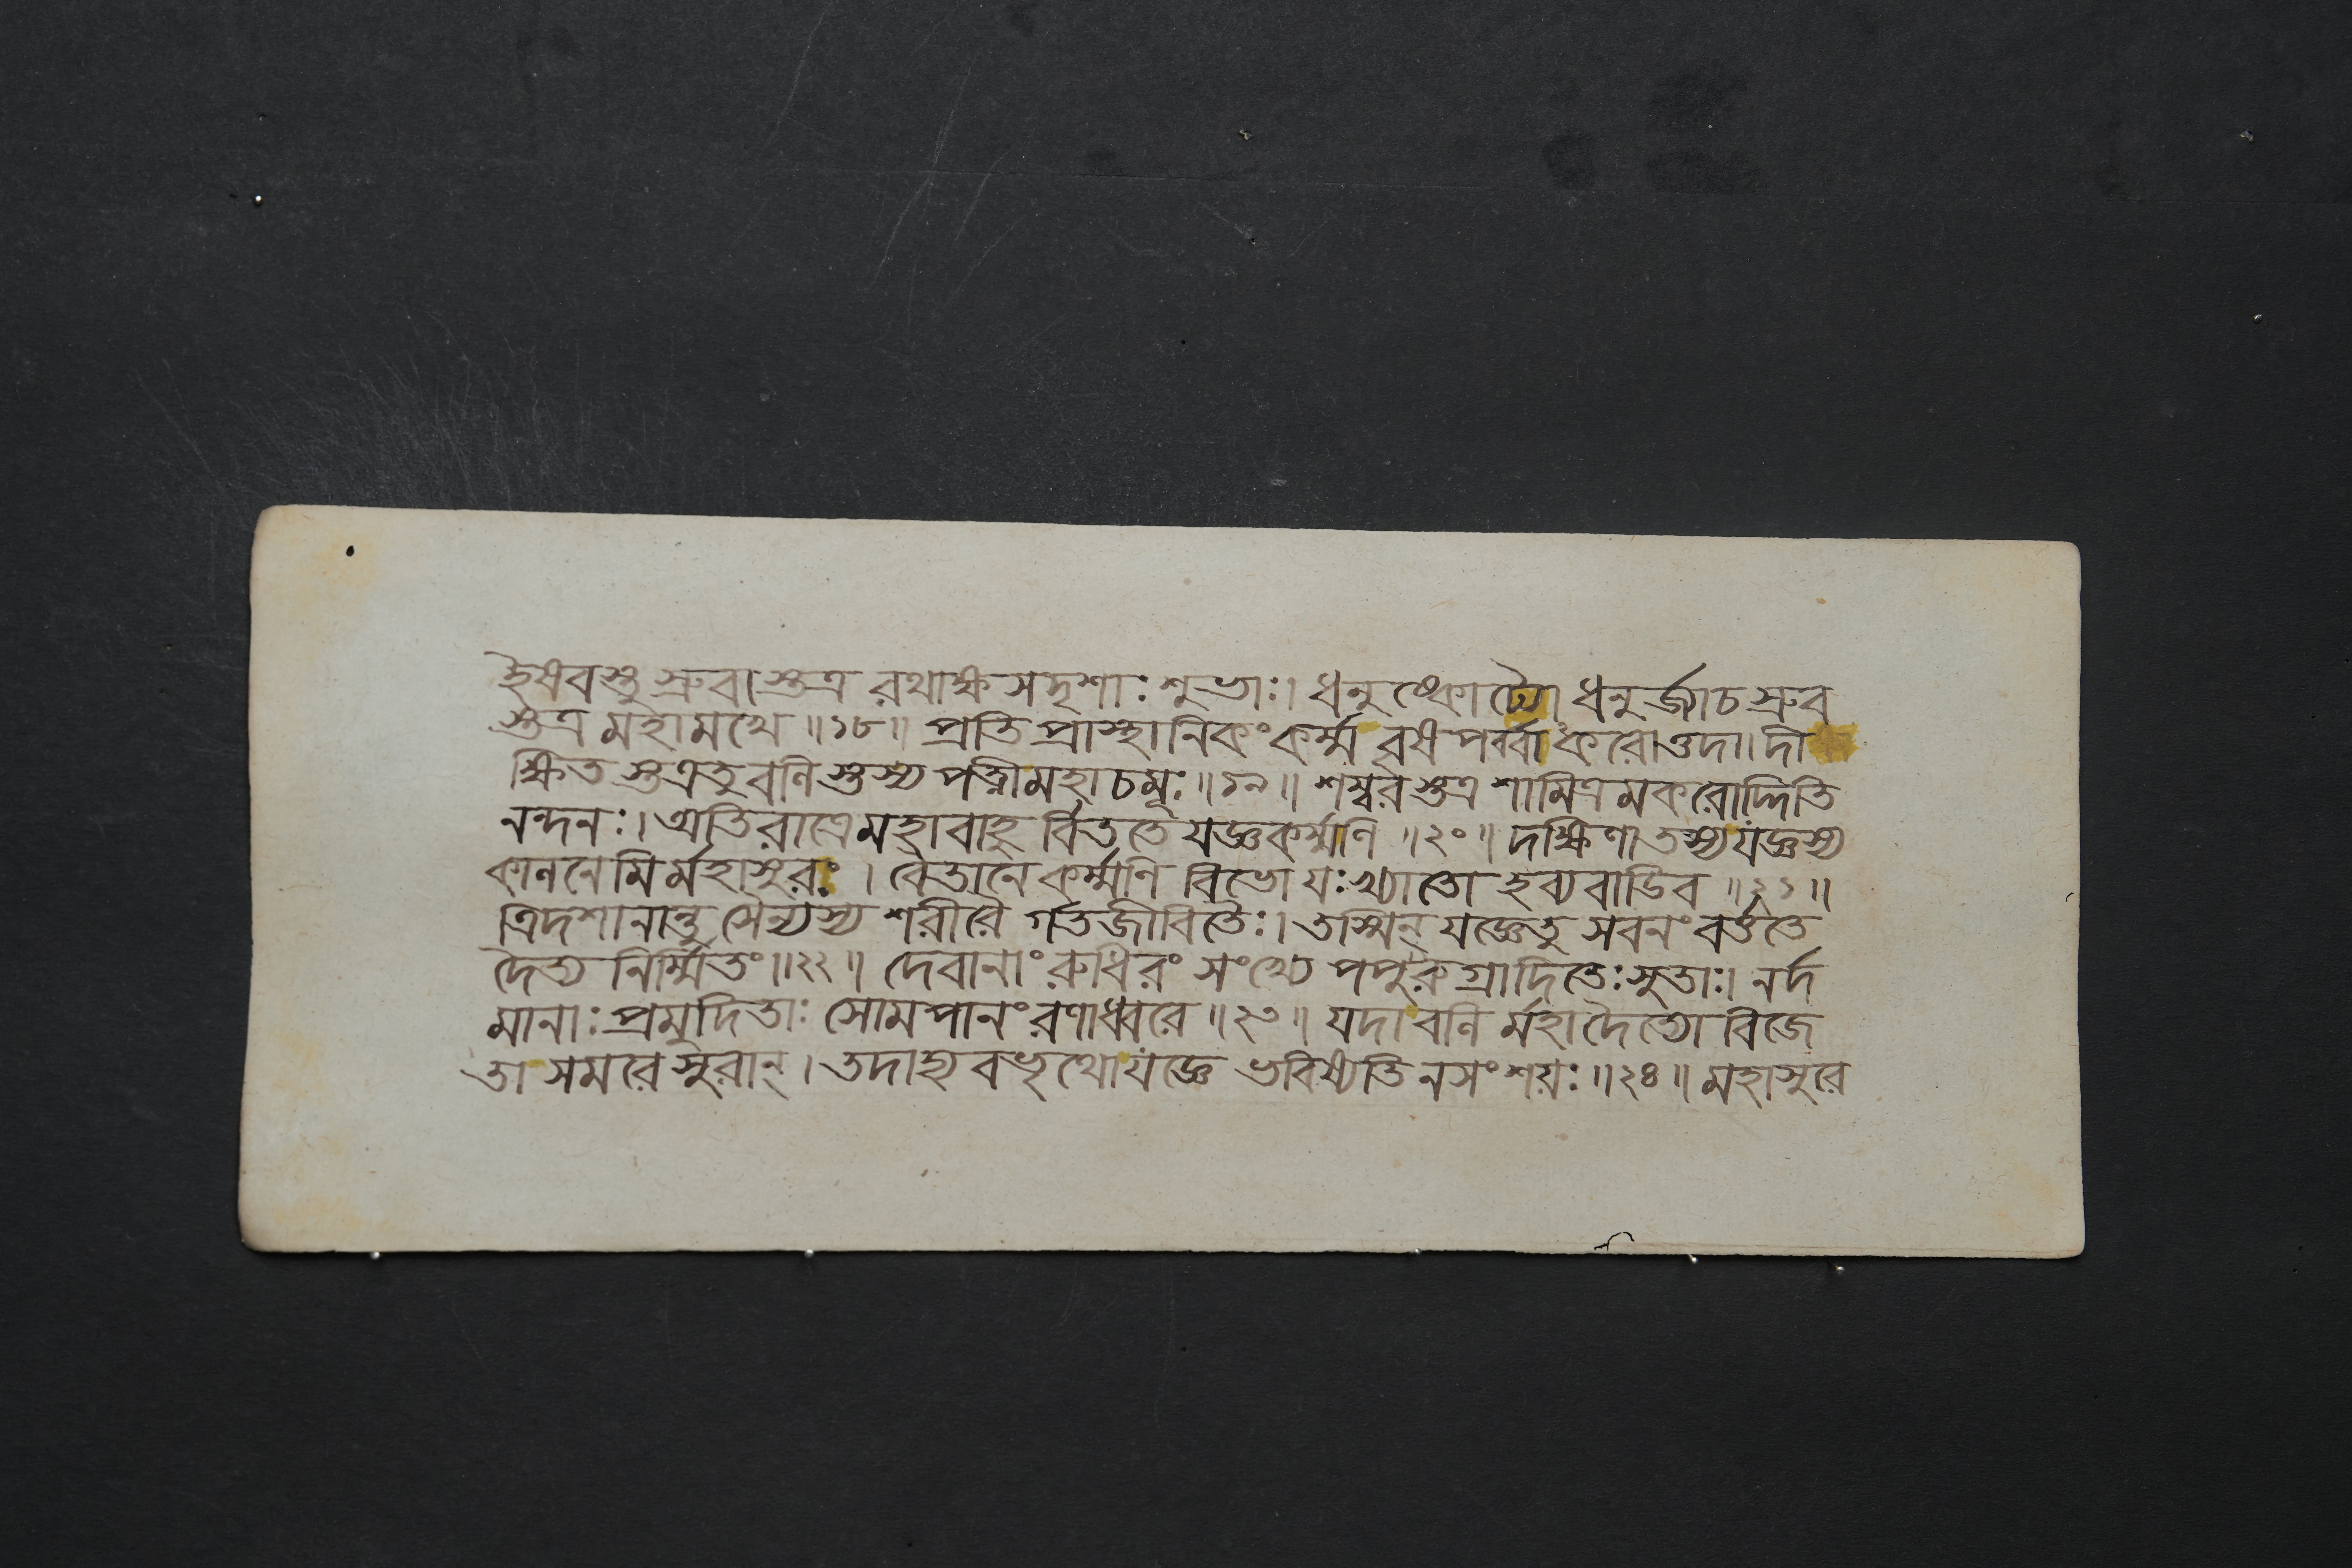 হৈষবস্তু স্রুবাস্তত্র রথাক্ষসদৃশাঃ শুভাঃ। ধনুষ্কোট্যো ধনুর্জ্জাচ স্রুব
স্তত্র মহামখে ॥১৮॥ প্রতিপ্রাস্থানিকং কর্ম্ম বৃষপর্ব্বাকরোত্তদা। দী
ক্ষিতস্তত্রতু বলিস্তস্য পত্নী মহাচমূঃ ॥১৯॥ শম্বরস্তত্র শামিত্রমকরোদ্দিতি
নন্দনঃ। অতিরাত্রে মহাবাহুর্বিততে যজ্ঞকর্ম্মণি ॥২০॥ দক্ষিণা তস্য যজ্ঞস্য
কালনেমির্মহাসুরঃ । বৈতানে কর্ম্মণি বিভো যঃ খ্যাতো হব্যবাডিব ॥২১॥
ত্রিদশানান্তু সৈন্যস্য শরীরৈর্গতজীবিতৈঃ। তস্মিন্ যজ্ঞেতু সবনং বর্ত্ততে
দৈত্য নির্ম্মিতং॥২২॥ দেবানাং রুধিরং সংখ্যে পপুরুগ্রাদিতেঃ সুতাঃ। নর্দ
মানাঃ প্রমুদিতাঃ সোমপানং রণাধ্বরে ॥২৩॥ যদা বলির্মহাদৈত্যো বিজে
তা সমরে সুরান্। তদাহ্যবভৃথো যজ্ঞে ভবিষ্যতি নসংশয়ঃ ॥২৪॥ মহাসুরে